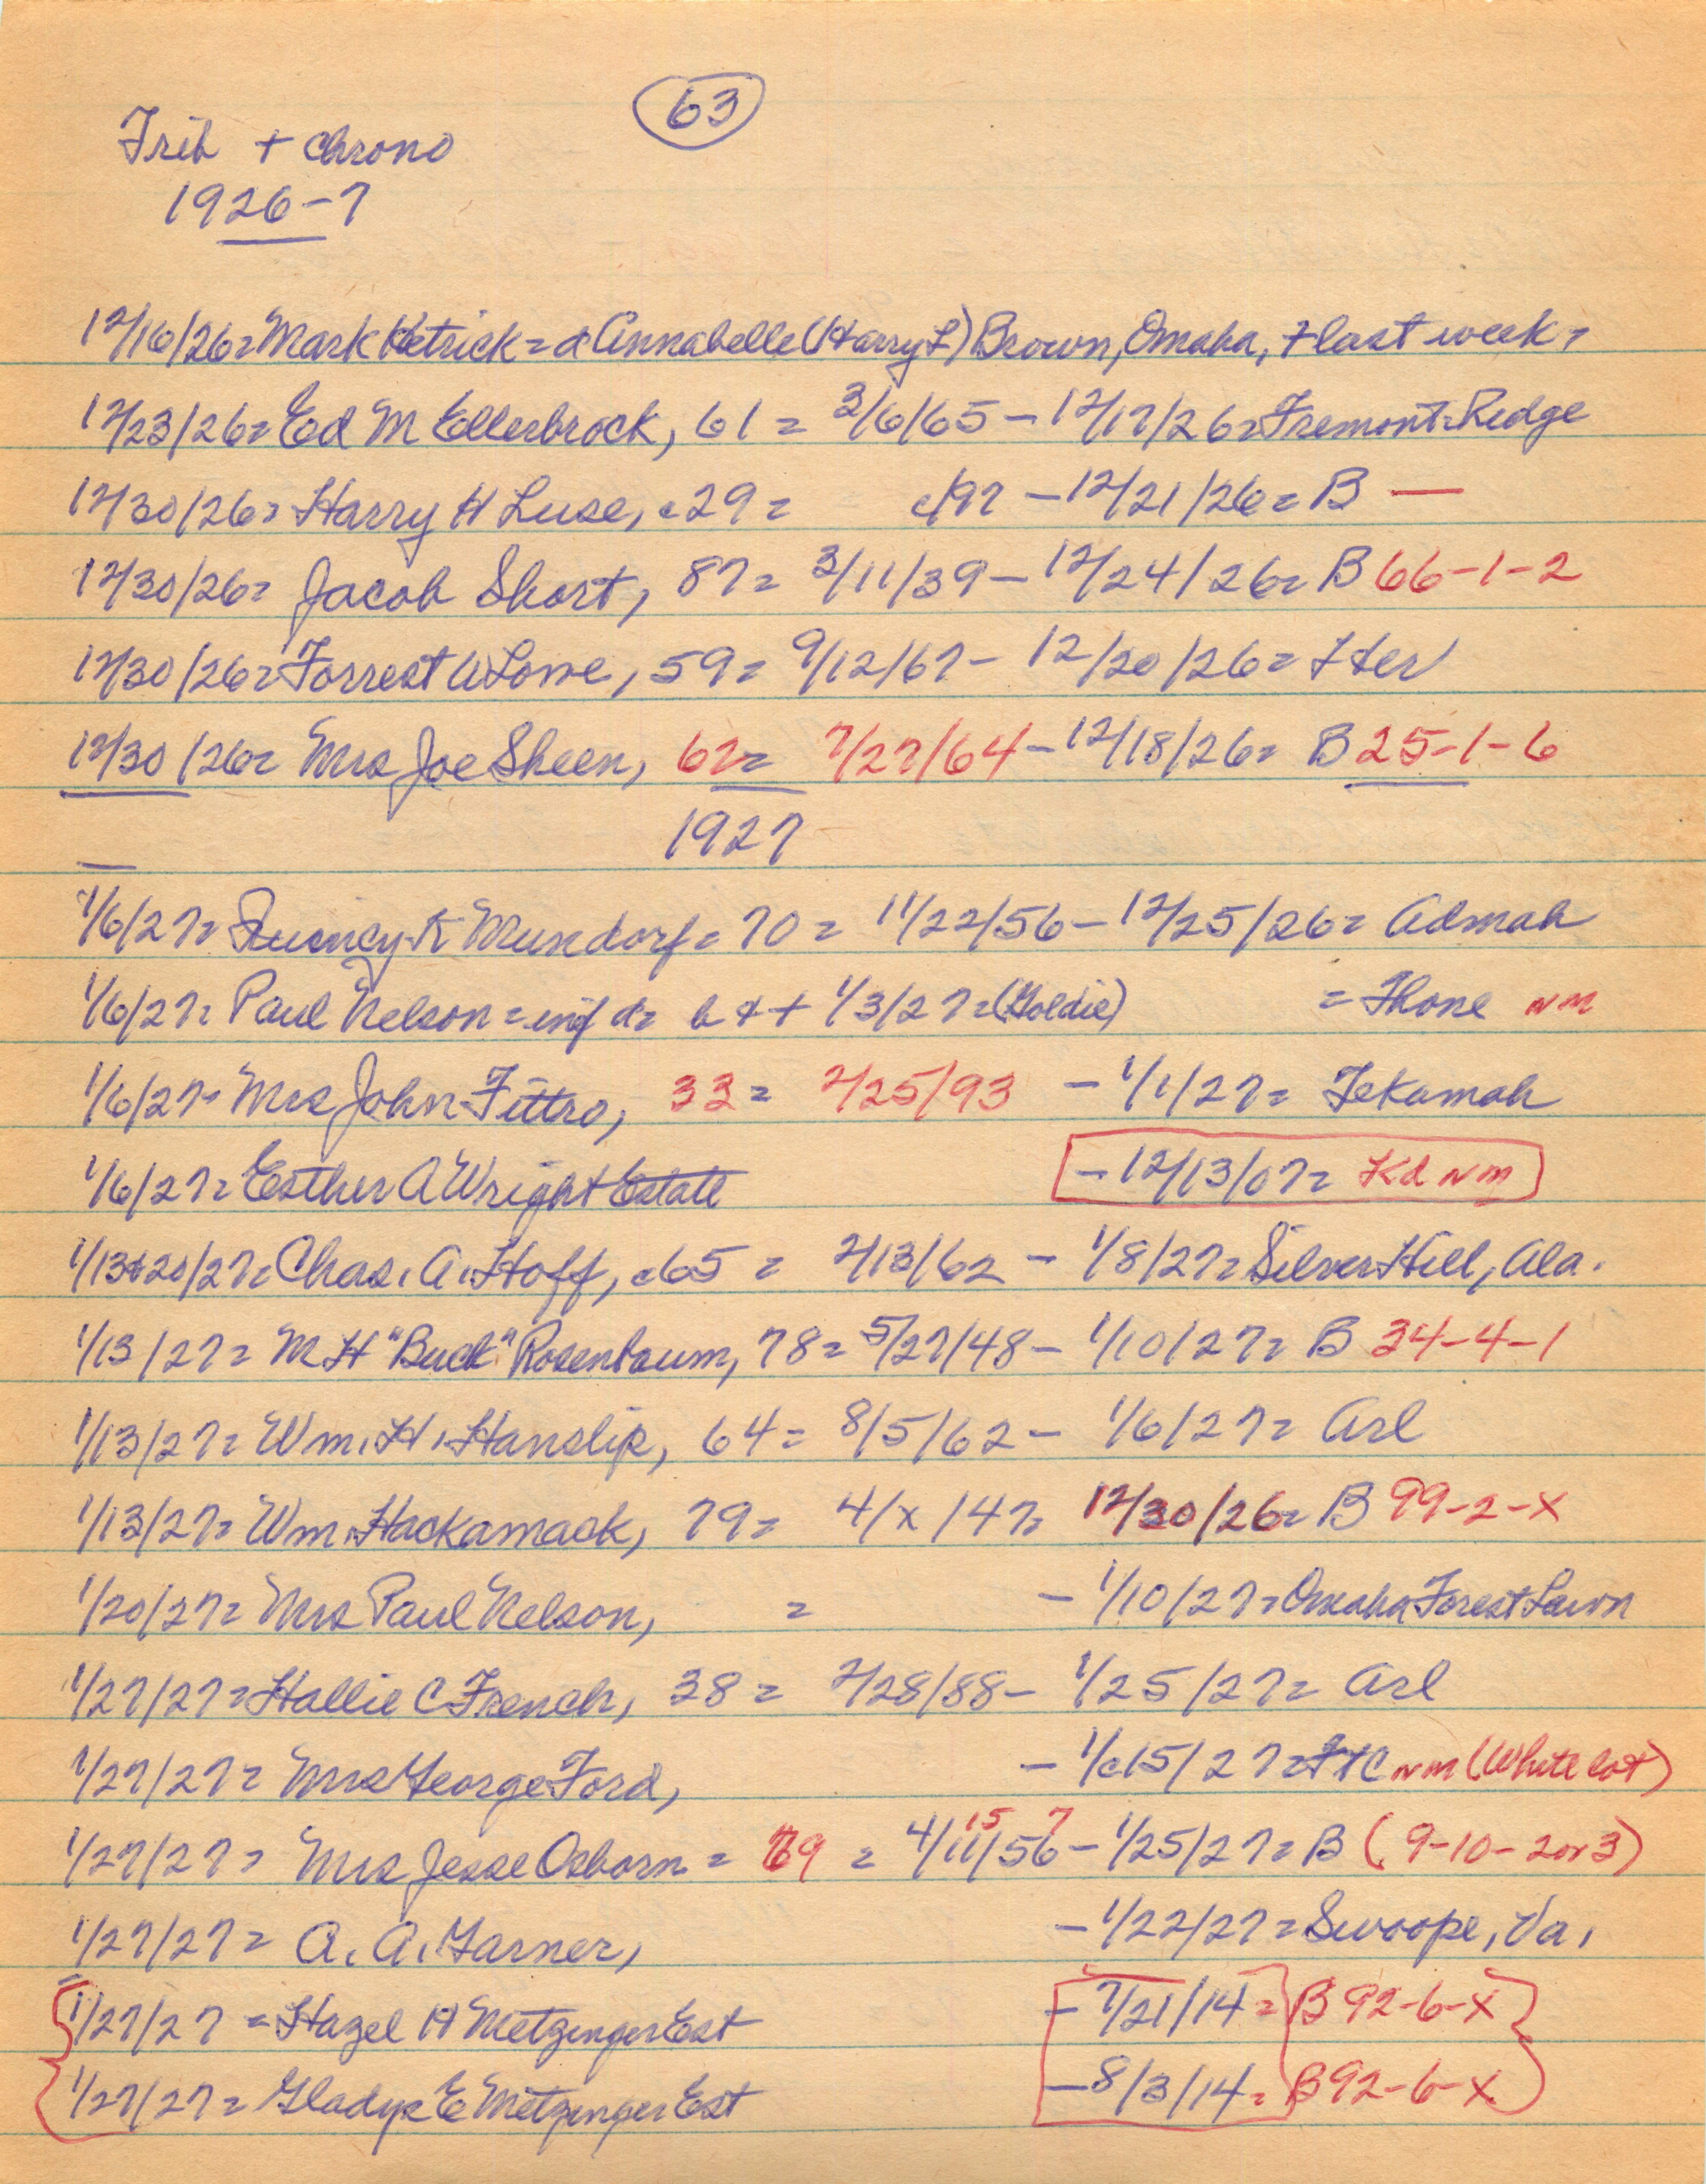 63
Trib + Chrono
1926-7
12/16/26= Mark Hetrick = d Annabelle (Harry L) Brown, Omaha, + last week =
12/23/26= Ed M Ellerbrock, 61 = 3/6/65 - 12/17/26= Fremont-Ridge
12/30/26= Harry H Luse, c29 = c/97 - 12/21/26= B —
12/30/26= Jacob Short, 87= 3/11/39 - 12/24/26= B 66-1-2
12/30/26= Forrest W Lowe, 59= 9/12/67- 12/20/26= Her
12/30/26= Mrs Joe Sheen, 62= 7/27/64 - 12/18/26= B 25-1-6
1927
1/6/27= Quincy K Mundorf = 70 = 11/22/56 - 12/25/26= Admah
1/6/27= Paul Nelson = inf d= b & + 1/3/27=(Goldie) = Fhone nm
1/6/27= Mrs John Fittro, 33 = 2/25/93 - 1/1/27= Tekamah
1/6/27= Esther A Wright Estate - 12/13/07= Kd nm
1/13&20/27= Chas. A. Hoff, c65 = 2/13/62 - 1/8/27= Silver Hill, Ala.
1/13/27= M H "Buck" Rosenbaum, 78= 5/27/48 - 1/10/27= B 34-4-1
1/13/27= Wm. H. Hanslip, 64 = 8/5/62 - 1/6/27= Arl
1/13/27= Wm. Hackamack, 79= 4/x/47= 12/30/26= B 99-2-x
1/20/27= Mrs Paul Nelson, = - 1/10/27= Omaha Forest Lawn
1/27/27= Hallie C French, 38 = 2/28/88 - 1/25/27= Arl
1/27/27= Mrs George Ford, - 1/c15/27= FtC nm (White lot)
1/27/27= Mrs Jesse Osborn = 69 = 4/11/56 15 7 - 1/25/27= B (9-10-2 or 3)
1/27/27= A. A. Garner, - 1/22/27= Swoope, Va.
1/27/27 = Hazel H Metzinger Est - 7/21/14 = B 92-6-x
1/27/27 = Gladys E Metzinger Est - 8/3/14 = B 92-6-x